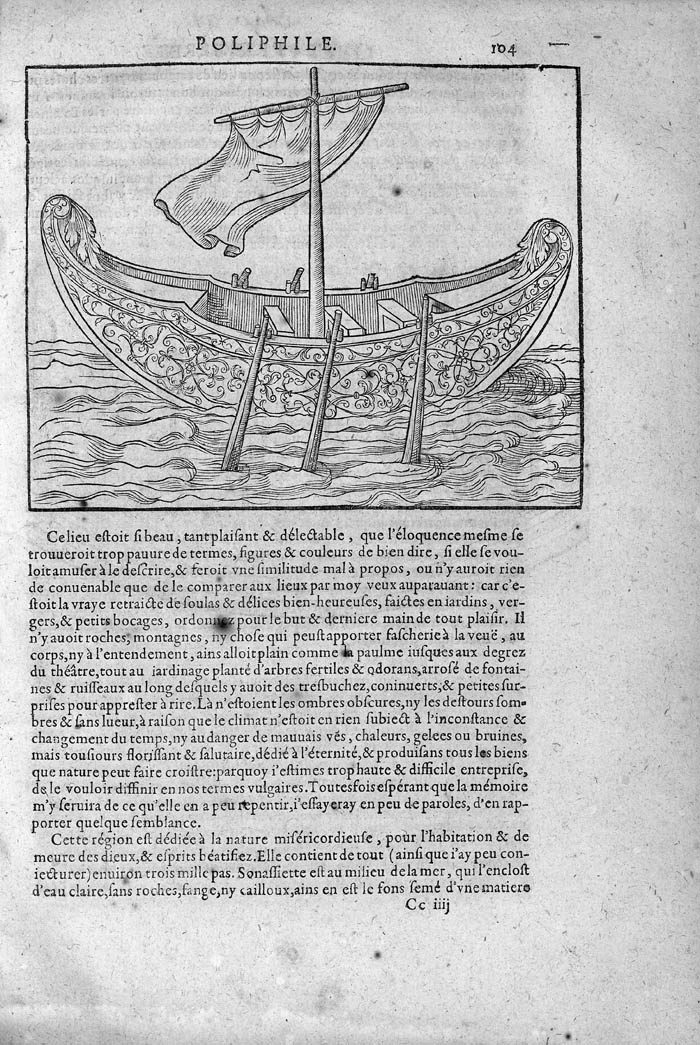 POLIPHILE. 104
Ce lieu estoit si beau, tant plaisant & délectable, que l'éloquence mesme se
trouueroit trop pauure de termes, figures & couleurs de bien dire, si elle se vou-
loit amuser à le descrire, & feroit vne similitude mal à propos, ou n'y auroit rien
de conuenable que de le comparer aux lieux par moy veux auparauant: car c'e-
stoit la vraye retraicte de soulas & délices bien-heureuses, faictes en iardins, ver-
gers, & petits bocages, ordonnez pour le but & derniere main de tout plaisir. Il
n'y auoit roches, montagnes, ny chose qui peust apporter fascherie à la veuë, au
corps, ny à l'entendement, ains alloit plain comme la paulme iusques aux degrez
du théâtre, tout au iardinage planté d'arbres fertiles & odorans, arrosé de fontai-
nes & ruisseaux au long desquels y auoit des tresbuchez, coninuerts, & petites sur-
prises pour apprester à rire. Là n'estoient les ombres obscures, ny les destours som-
bres & sans lueur, à raison que le climat n'estoit en rien subiect à l'inconstance &
changement du temps, ny au danger de mauuais vés, chaleurs, gelees ou bruines,
mais tousiours florissant & salutaire, dédié à l'éternité, & produisans tous les biens
que nature peut faire croistre: parquoy i'estimes trop haute & difficile entreprise,
de le vouloir diffinir en nos termes vulgaires. Toutesfois espérant que la mémoire
m'y seruira de ce qu'elle en a peu repentir, i'essayeray en peu de paroles, d'en rap-
porter quelque semblance.
Cette région est dédiée à la nature miséricordieuse, pour l'habitation & de
meure des dieux, & esprits béatifiez. Elle contient de tout (ainsi que i'ay peu con-
iecturer) enuiron trois mille pas. Son assiette est au milieu de la mer, qui l'enclost
d'eau claire, sans roches, fange, ny cailloux, ains en est le fons semé d'vne matiere
Cc iiij